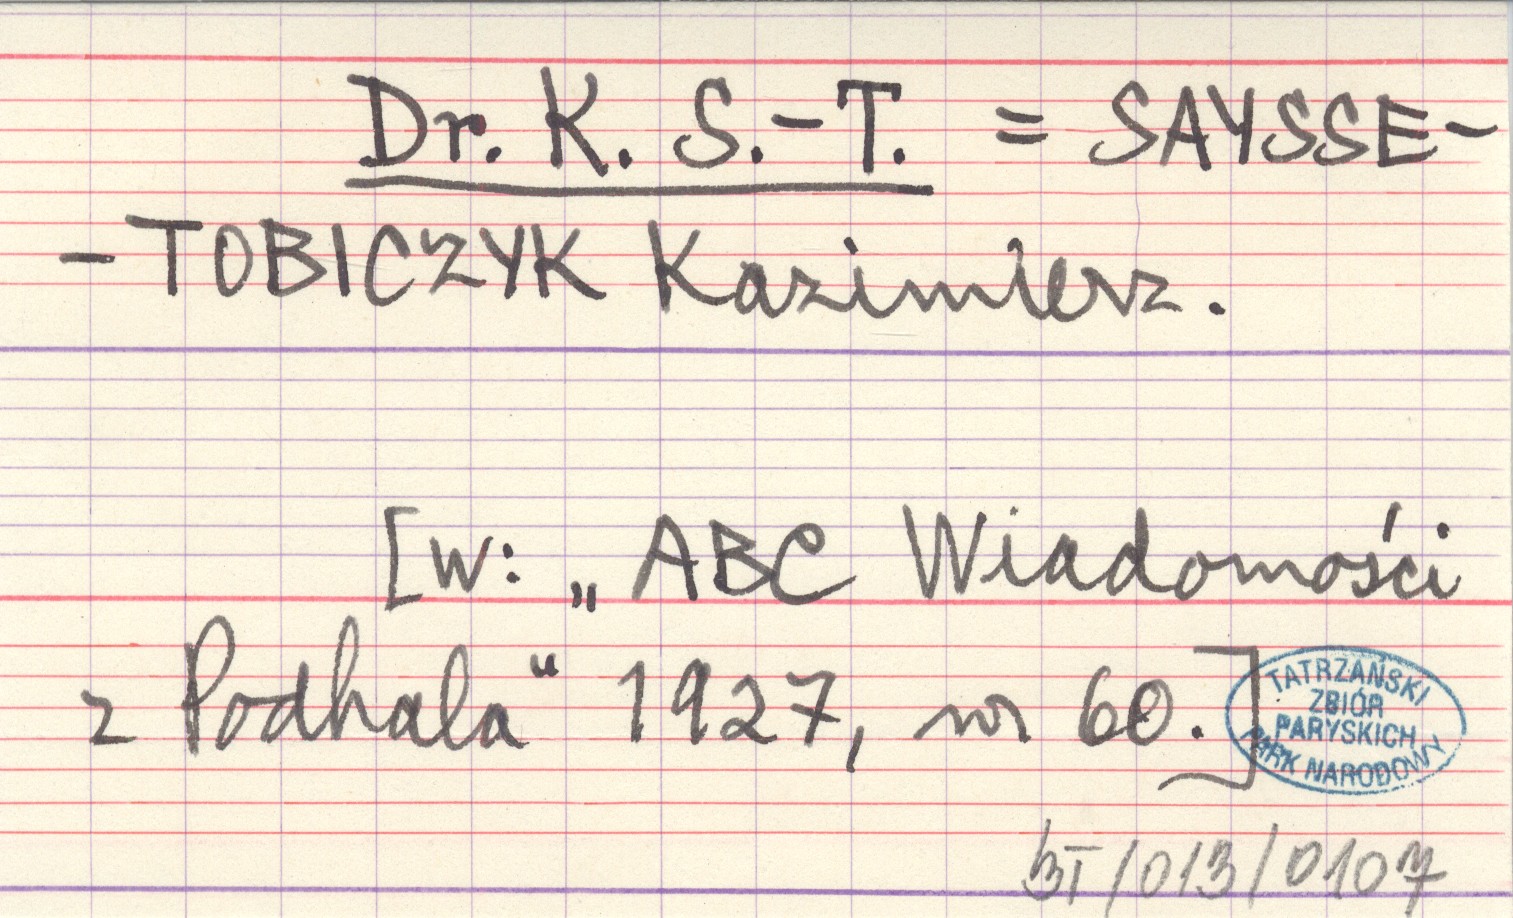 Dr. K. S.-T. = SAYSSE-
-TOBICZYK Kazimierz.
[w: „ABC Wiadomości
z Podhala“ 1927, nr 60.]
TATRZAŃSKI
ZBIÓR
PARYSKICH
PARK NARODOWY
BI/013/0107